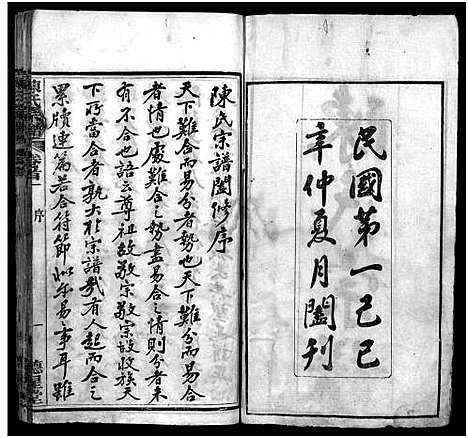 民國第一己巳
年仲夏月闔刊
陳氏宗譜闔修序
天下難合而易分者勢也天下難分而易合
者情也處難合之勢盡易合之情則分者未
有不合也語云尊祖故敬宗敬宗故收族天
下所當合者孰大於宗譜哉有人起而合之
累牘連篇若合符節此乐易事耳雖
序
一
德星堂